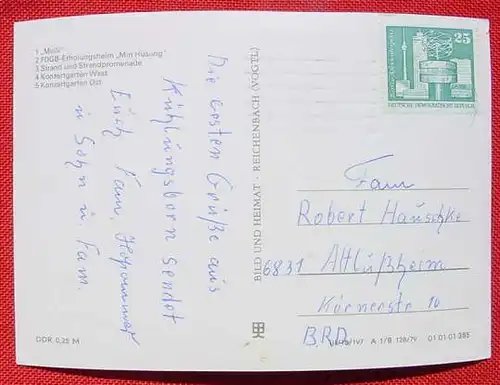 1 "Molli"
2 FDGB-Erholungsheim „Min Hüsung"
3 Strand und Strandpromenade
4 Konzertgarten West
5 Konzertgarten Ost
Die besten Grüße aus
Kühlungsborn sendet
Euch Fam.
u Sohn u. Fam.
DDR 0,25 M
BILD UND HEIMAT · REICHENBACH (VOGTL)
25
DEUTSCHE DEMOKRATISCHE REPUBLIK
Fam
Robert Hauschke
6831 Altlußheim
Körnerstr 10
BRD
A 1/B 128/79 01 01 01 385